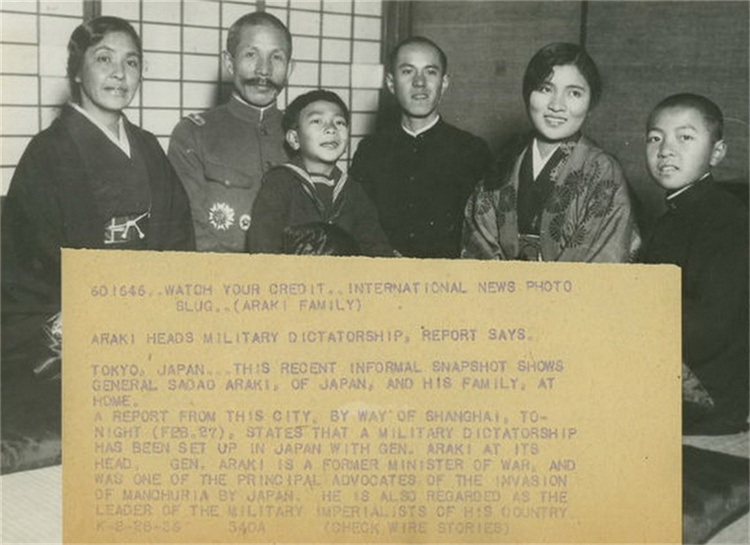 601646..WATCH YOUR CREDIT..INTERNATIONAL NEWS PHOTO
SLUG..(ARAKI FAMILY)
ARAKI HEADS MILITARY DICTATORSHIP, REPORT SAYS.
TOKYO, JAPAN...THIS RECENT INFORMAL SNAPSHOT SHOWS
GENERAL SADAO ARAKI, OF JAPAN, AND HIS FAMILY, AT
HOME.
A REPORT FROM THIS CITY, BY WAY OF SHANGHAI, TO-
NIGHT (FEB.27), STATES THAT A MILITARY DICTATORSHIP
HAS BEEN SET UP IN JAPAN WITH GEN. ARAKI AT ITS
HEAD. GEN. ARAKI IS A FORMER MINISTER OF WAR, AND
WAS ONE OF THE PRINCIPAL ADVOCATES OF THE INVASION
OF MANCHURIA BY JAPAN. HE IS ALSO REGARDED AS THE
LEADER OF THE MILITARY IMPERIALISTS OF HIS COUNTRY.
K-2-28-36 340A (CHECK WIRE STORIES)